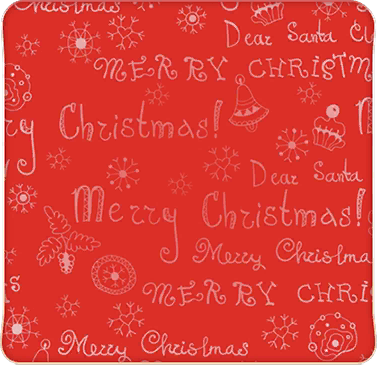 Dear Santa Cl
MERRY CHRISTM
y Christmas!
Dear Santa
Merry Christmas!
Merry Christma
as
MERRY CHRI
Merry Christmas